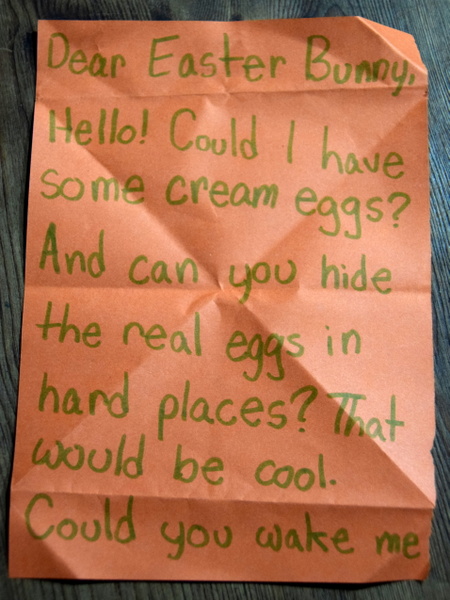 Dear Easter Bunny,
Hello! Could I have
some cream eggs?
And can you hide
the real eggs in
hard places? That
would be cool.
Could you wake me